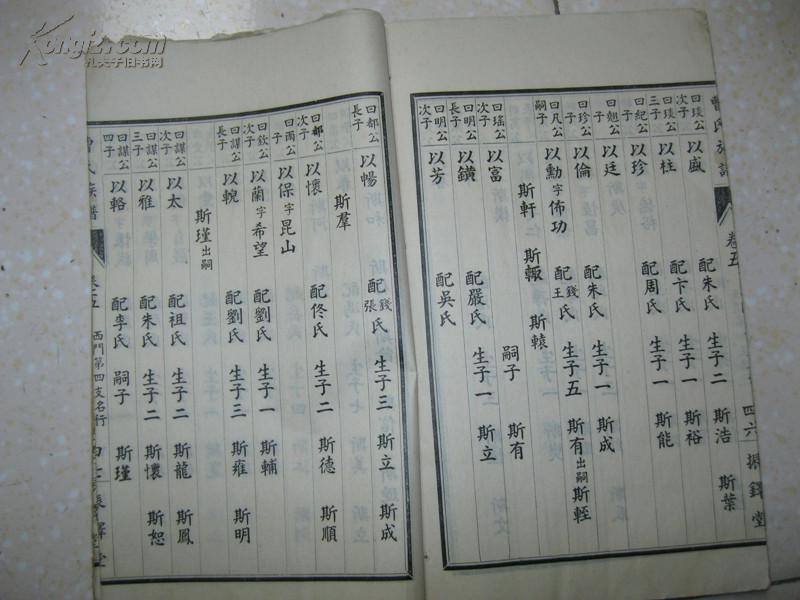 曹氏族譜 卷五 四六 振鐸堂
曰琰公次子 以盛 配朱氏 生子二 斯浩 斯葉
曰琰公三子 以柱 配卞氏 生子一 斯裕
曰紀公子 以珍 配周氏 生子一 斯能
曰翹公子 以廷 配朱氏 生子一 斯成
曰珍公子 以倫 配錢氏王 生子五 斯有出嗣 斯輕
曰凡公嗣子 以勳字佈功 嗣子 斯有
斯軒 斯輙 斯轅
曰瑤公次子 以富 配嚴氏 生子一 斯立
曰明公長子 以鐄
曰明公次子 以芳 配吳氏
曰都公長子 以暢 配錢氏張 生子三 斯立 斯成
斯羣
曰都公次子 以懷 配佟氏 生子二 斯德 斯順
曰雨公子 以保字昆山
曰欽公子 以蘭字希望 配劉氏 生子一 斯輔
曰謀公長子 以輗 配劉氏 生子三 斯雍 斯明
斯瑾出嗣
曰謀公次子 以太 配祖氏 生子二 斯龍 斯鳳
曰謀公三子 以雅 配朱氏 生子二 斯懷 斯恕
曰謀公四子 以輅 配李氏 嗣子 斯瑾
曹氏族譜 卷五 西門第四支名行 振鐸堂
孔夫子旧书网